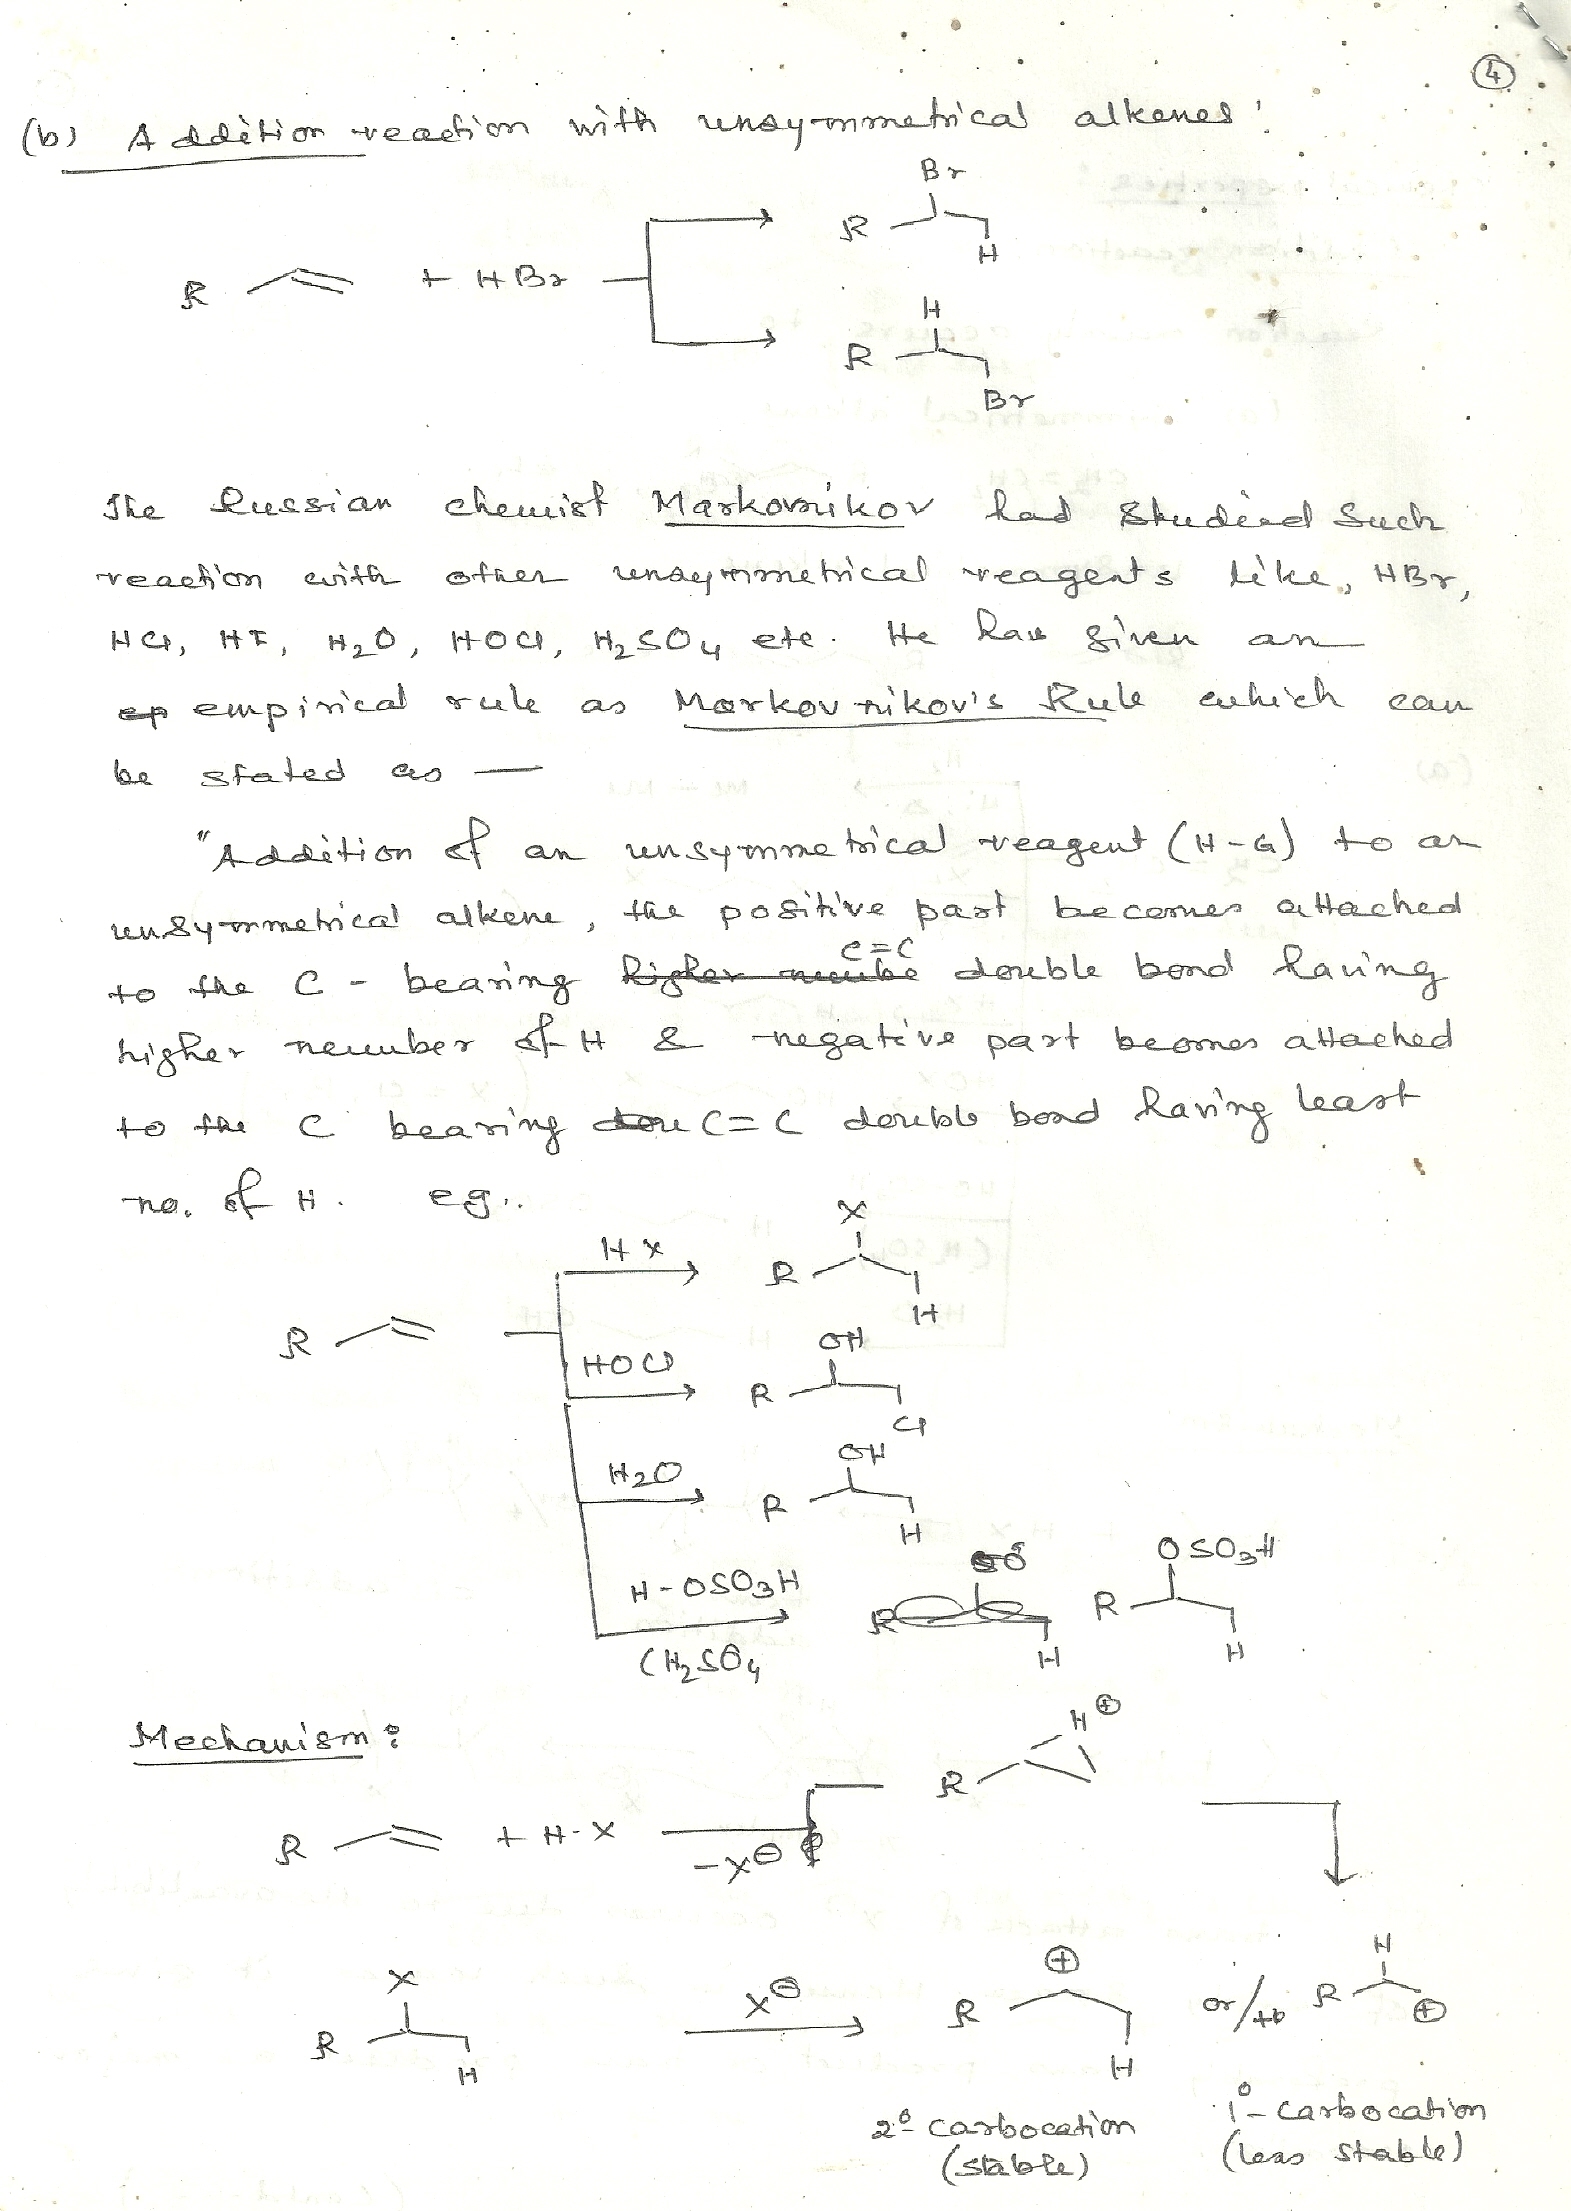 4
(b) Addition reaction with unsymmetrical alkenes :
Br
R
H
R + HBr
H
R
Br
The Russian chemist Markovnikov had studied such
reaction with other unsymmetrical reagents like, HBr,
HCl, HI, H2O, HOCl, H2SO4 etc. He has given an
empirical rule as Markovnikov's Rule which can
be stated as —
"Addition of an unsymmetrical reagent (H-G) to an
unsymmetrical alkene, the positive part becomes attached
to the C - bearing C=C double bond having
higher number of H & negative part becomes attached
to the C bearing C=C double bond having least
no. of H. eg..
X
HX
R
H
R
OH
HOCl
R
Cl
OH
H2O
R
H
OSO3H
H-OSO3H
R R
(H2SO4
H H
Mechanism :
H⊕
R
R + H-X
-X⊖
X ⊕ H
X⊖
R R or/to R ⊕
H H
2° carbocation 1°- carbocation
(stable) (less stable)